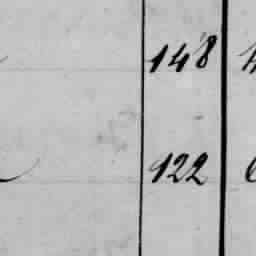 148
122